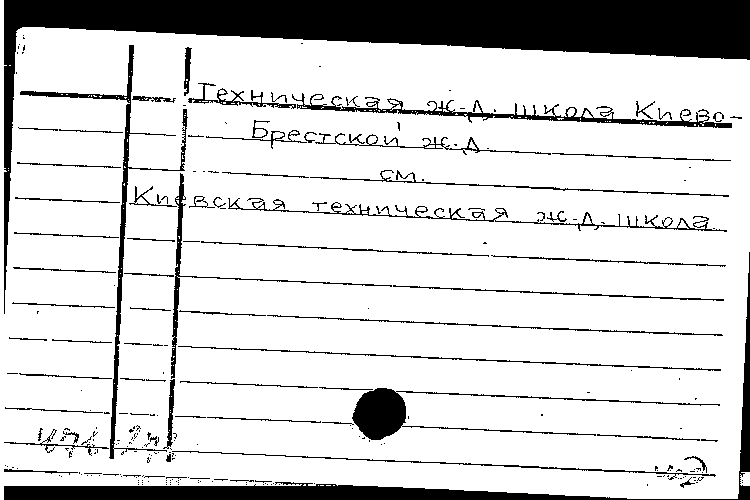 Техническая ж.д. школа Киево-
Брестской ж.д.
см.
Киевская техническая ж.д. школа